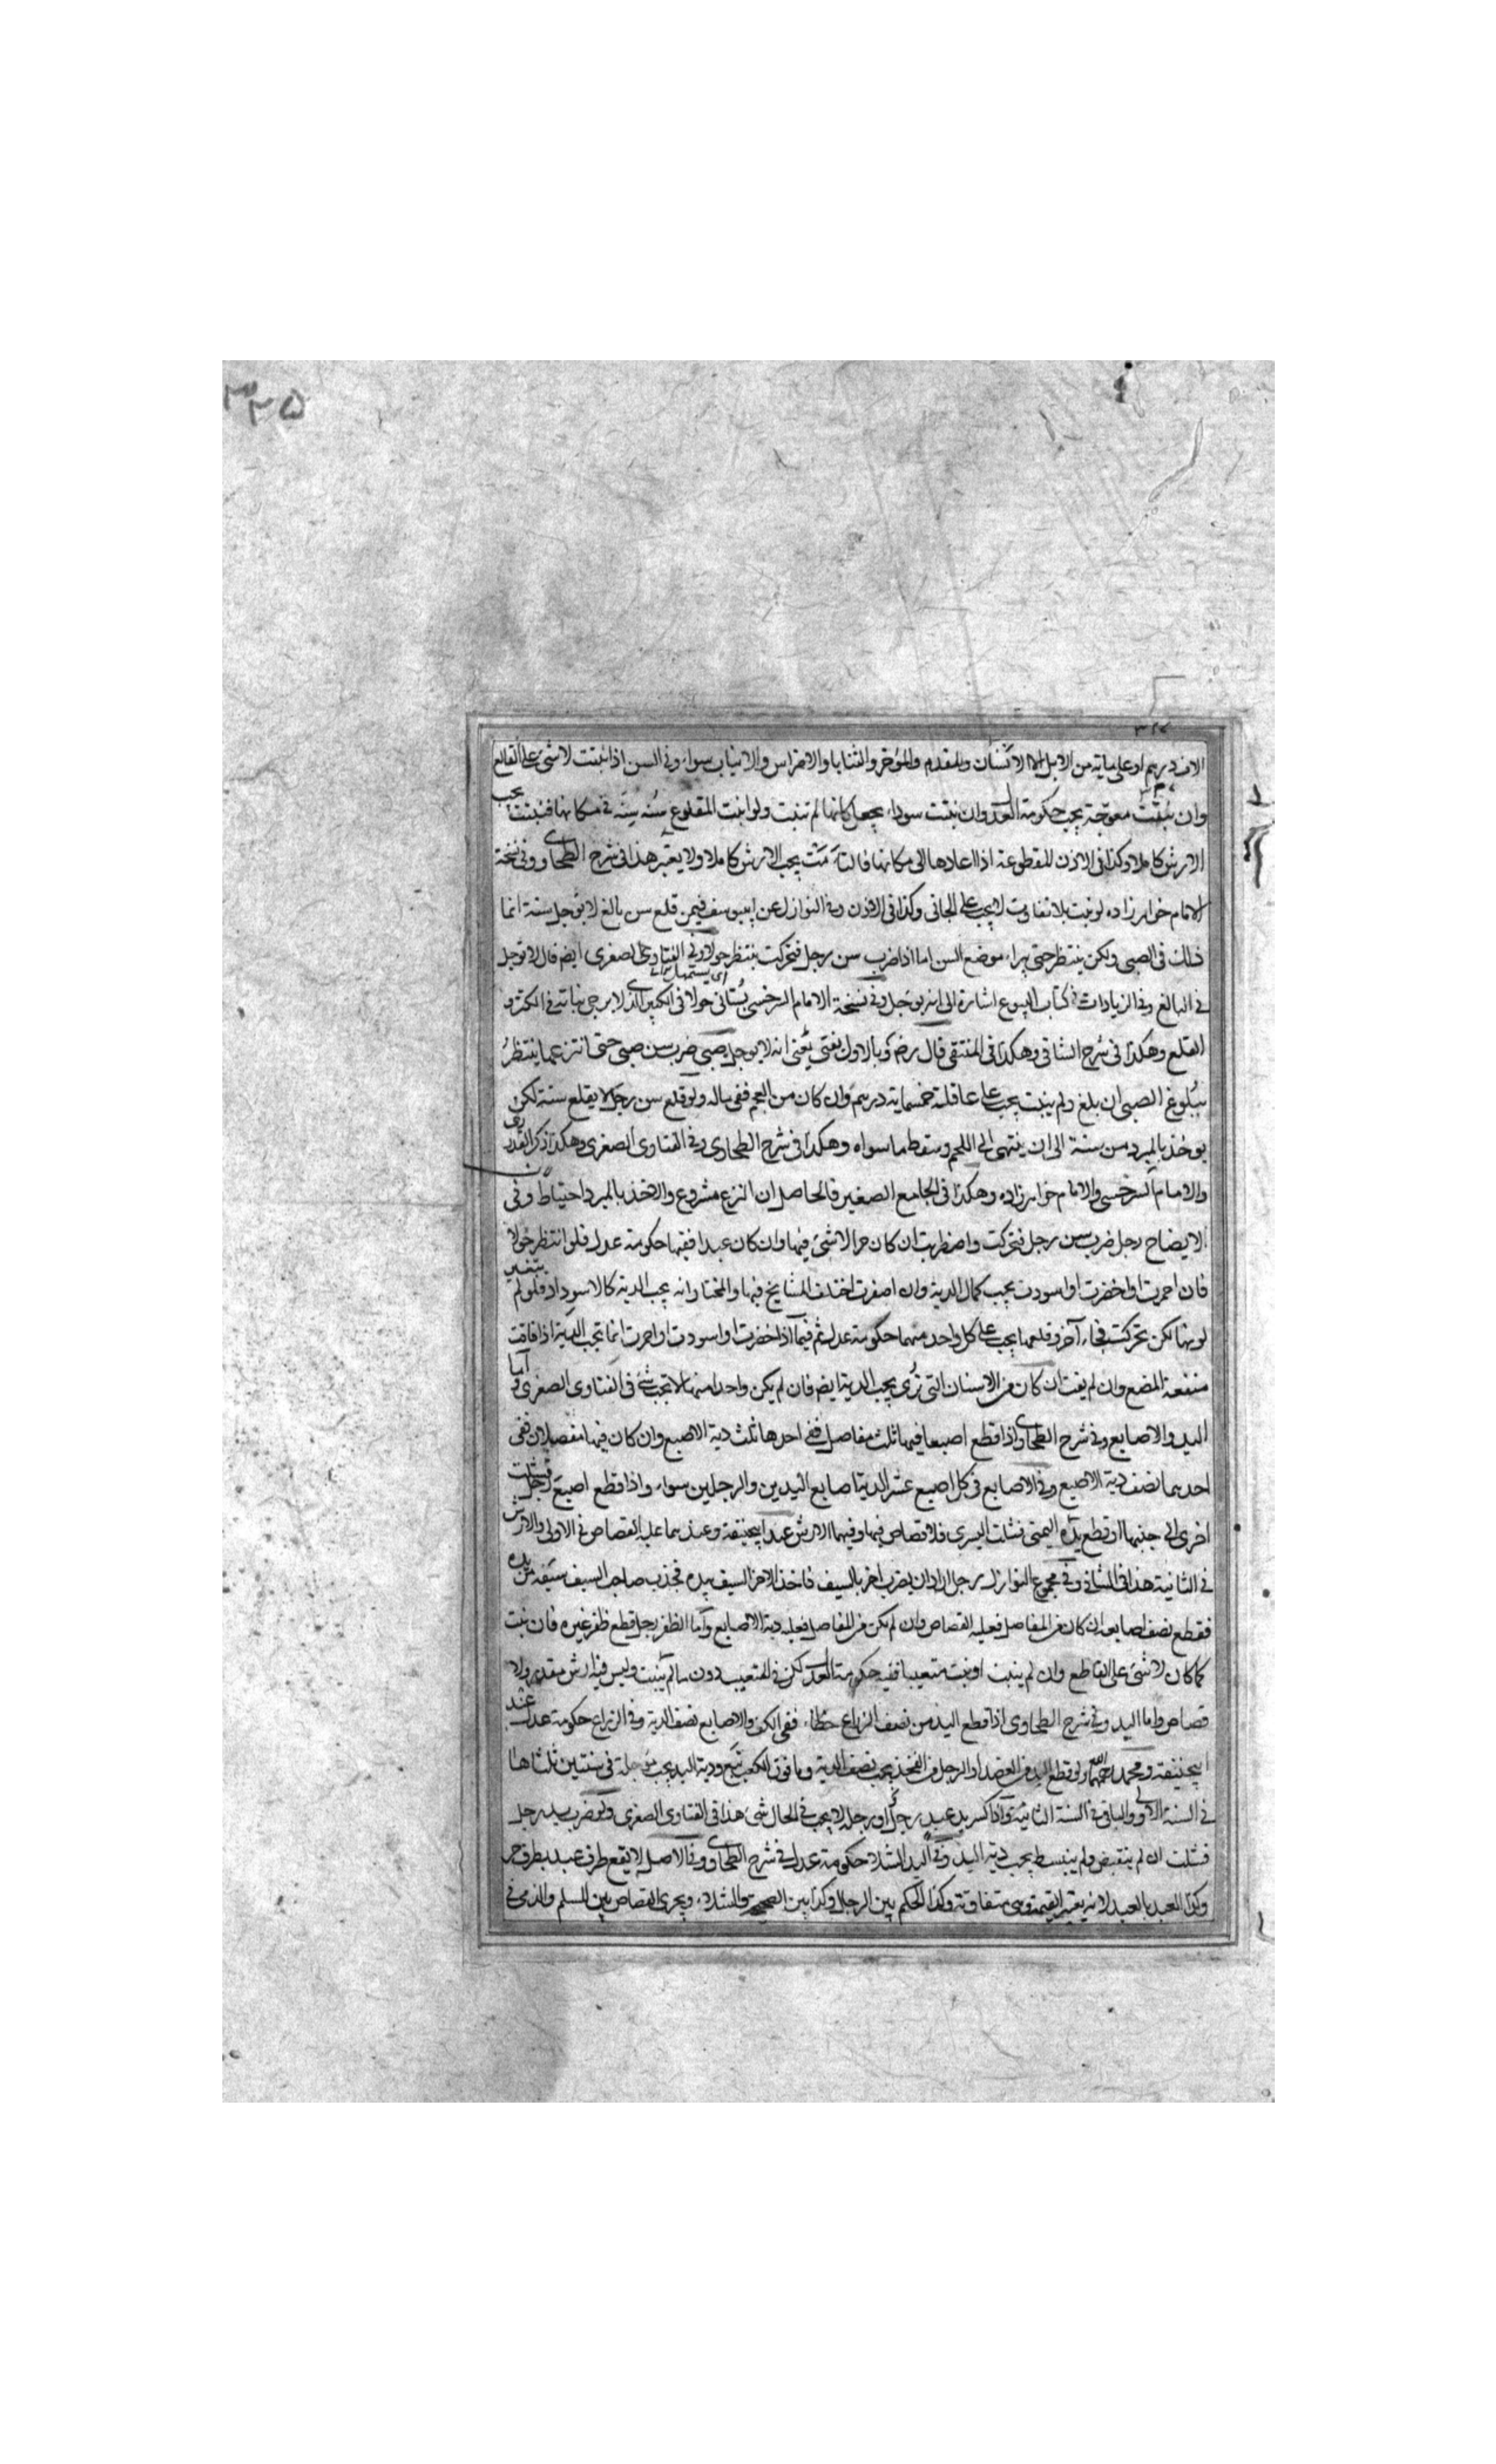 ٣٢٥
الاف درهم او على ماية من الابل الا الاسنان والمقدم والمؤخر والثنايا والاضراس والانياب سواء وفى السن اذا نبتت لا شئ على القالع
وان نبتت معوجة يجب حكومة العدل وان نبتت سوداء يجعل كانها لم تنبت ولو انبت المقلوع سنه سنة فى مكانها فنبتت يجب
الارش كاملا وكذا فى الاذن المقطوعة اذا اعادها الى مكانها فالتأمت يجب الارش كاملا ولا يعتبر هذا فى شرح الطحاوى وفى نسخة
الامام خواهرزاده لو نبت بلا تفاوت لا يجب على الجانى وكذا فى الاذن وفى النوازل عن ابيوسف فيمن قلع سن بالغ لا يؤجل سنة انما
ذلك فى الصبى ولكن ينتظر حتى يبراء موضع السن اما اذا ضرب سن رجل فتحركت ينتظر حولا وفى الفتاوى الصغرى ايضم قال لا توجل
فى البالغ وفى الزيادات فى كتاب البيوع اشارة الى انه يوجل وفى نسخة الامام السرخسى يستانى حولا فى الكبير الذى لا يرجى نباته فى الكسر و
القلع وهكذا فى شرح الشافى وهكذا فى المنتقى قال رضه وبالاول نفتى يعنى انه لا يوجل صبى ضرب سن صبى حتى انتزعها ينتظر
ببلوغ الصبى ان بلغ ولم ينبت يجب على عاقلته خمسماية درهم وان كان من العجم ففى ماله ولو قلع سن رجل لا يقلع سنه لكن
يوخذ بالمبرد من سنه الى ان ينتهى الى اللحم وسقط ما سواه وهكذا فى شرح الطحاوى وفى الفتاوى الصغرى وهكذا ذكر القدورى
والامام السرخسى والامام خواهرزاده وهكذا فى الجامع الصغير فالحاصل ان النزع مشروع والاخذ بالمبرد احتياط وفى
الايضاح رجل ضرب سن رجل فتحركت واضطربت ان كان حرا لا شئ فيها وان كان عبدا ففيها حكومة عدل فلو انتظر حولا
فان احمرت او اخضرت او اسودت يجب كمال الدية وان اصفرت اختلف المشايخ فيها والمختار انه يجب الدية كالاسوداد فلو لم يتغير
لونها لكن تحركت فجاء آخر وقلعها يجب على كل واحد منهما حكومة عدل ثم فيما اذا اخضرت او اسودت او احمرت انما تجب الدية اذا فاتت
منفعة المضغ وان لم يفت ان كان من الاسنان التى ترى يجب الدية ايضم فان لم يكن واحدا منهما لا يجب شئ فى الفتاوى الصغرى واما
اليد والاصابع وفى شرح الطحاوى اذا قطع اصبعا فيها ثلث مفاصل ففى احدها ثلث دية الاصبع وان كان فيها مفصلان ففى
احدهما نصف دية الاصبع وفى الاصابع فى كل اصبع عشر الدية اصابع اليدين والرجلين سواء واذا قطع اصبع رجل فشلت
اخرى الى جنبها او قطع يده اليمنى فشلت اليسرى فلا قصاص فيها وفيهما الارش عند ابيحنيفة وعندهما عليه القصاص فى الاولى والارش
فى الثانية هذا فى الشافى وفى مجموع النوازل رجل اراد ان يضرب اخر بالسيف فاخذ الاخر السيف بيده فجذب صاحب السيف سيفه من يده
فقطع نصف اصابعه ان كان من المفاصل فعليه القصاص وان لم يكن من المفاصل فعليه دية الاصابع واما الظفر رجل قطع ظفر غيره فان نبت
كما كان لا شئ على القاطع وان لم ينبت او نبت متعيبا ففيه حكومة العدل لكن فى المتعيب دون ما لم ينبت وليس فيه ارش مقدر ولا
قصاص واما اليد وفى شرح الطحاوى اذا قطع اليد من نصف الذراع خطاء ففى الكف والاصابع نصف الدية وفى الذراع حكومة عدل عند
ابيحنيفة ومحمد رحمهما الله ولو قطع اليد من العضد او الرجل من الفخذ يجب نصف الدية وما فوق الكعب تبع ودية اليد يجب مؤجلة فى سنتين ثلثاها
فى السنة الاولى والباقى فى السنة الثانية واذا كسر يد عبد رجل او رجله لا يجب فى الحال شئ هذا فى الفتاوى الصغرى ولو ضرب يد رجل
فشلت ان لم ينقبض ولم ينبسط يجب دية اليد وفى اليد الشلاء حكومة عدل فى شرح الطحاوى وفى الاصل لا يقع طرف عبد بطرف حر
وكذا العبد بالعبد لانه يعتبر القيمة وهى متفاوتة وكذا الحكم بين الرجال وكذا بين الصحيح والشلاء ويجرى القصاص بين المسلم والذمى فى